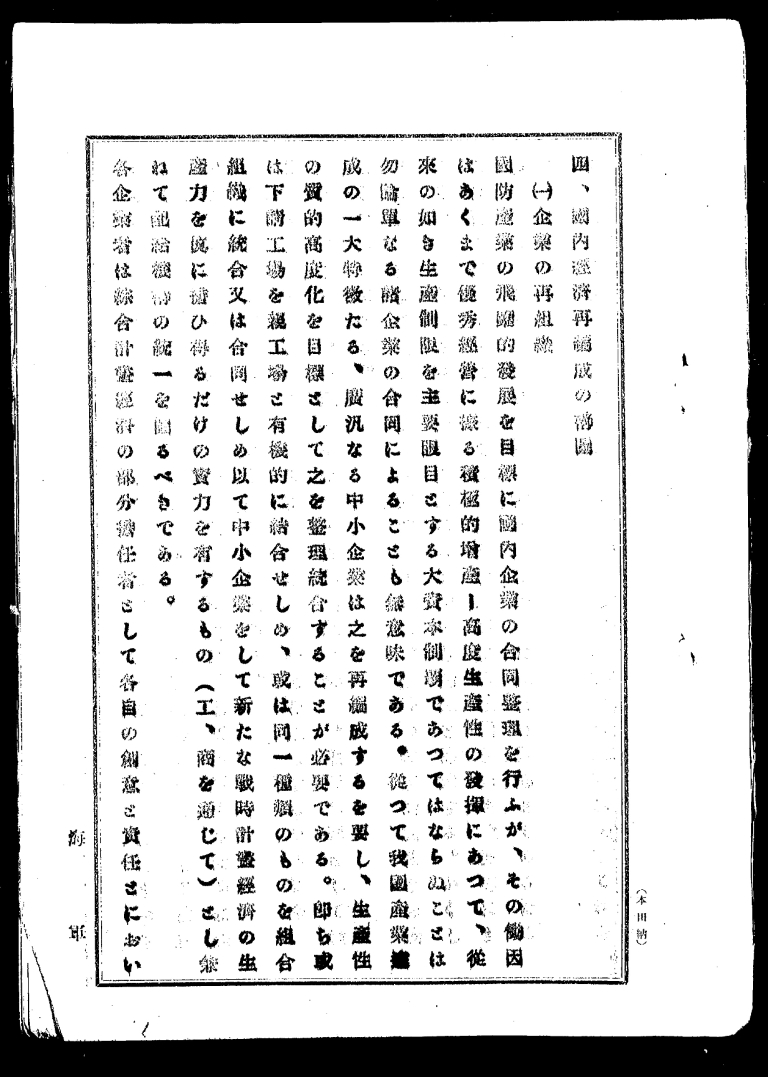 四、國內經濟再編成の構圖
㈠企業の再組織
國防產業の飛躍的發展を目標に國內企業の合同整理を行ふが、その働因
はあくまで優秀經營に據る積極的增產ー高度生產性の發揮にあつて、從
來の如き生產制限を主要眼目とする大資本制覇であつてはならぬことは
勿論單なる諸企業の合同によることも無意味である。從つて我國產業構
成の一大特徵たる、廣汎なる中小企業は之を再編成するを要し、生產性
の質的高度化を目標として之を整理統合することが必要である。卽ち或
は下請工場を親工場と有機的に結合せしめ、或は同一種類のものを組合
組織に統合又は合同せしめ以て中小企業をして新たな戰時計畫經濟の生
產力を優に補ひ得るだけの實力を有するもの(工、商を通じて)とし兼
ねて配給機構の統一を圖るべきである。
各企業者は綜合計畫經濟の部分擔任者として各自の創意と責任とにおい
(本田納)
海軍